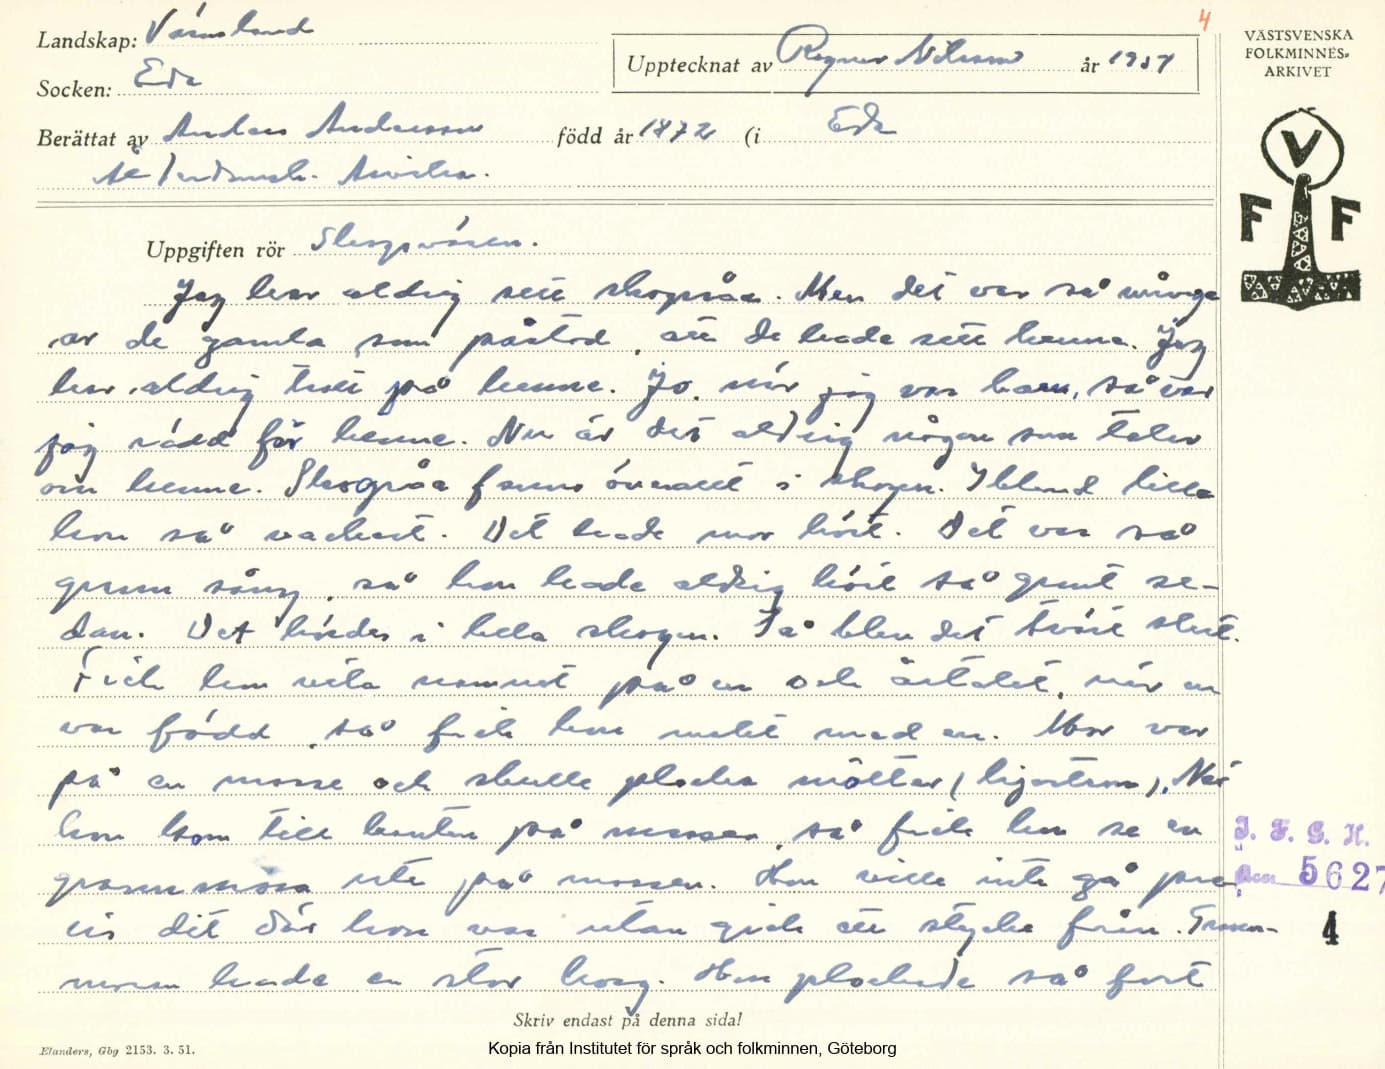 4
Landskap: Värmland
Upptecknat av Ragnar Nilsson år 1957
VÄSTSVENSKA
FOLKMINNES-
ARKIVET
Socken: Eda
Berättat av Anders Andersson född år 1872 (i Eda
Arvika.
V
F F
Uppgiften rör Skogsväsen.
Jag har aldrig sett skogsråa. Men det var så många
av de gamla som påstod, att de hade sett henne. Jag
har aldrig trott på henne. Jo, när jag var barn, så var
jag rädd för henne. Nu är det aldrig någon som talar
om henne. Skogsråa fanns överallt i skogen. Ibland lilla
hon så vackert. Det hade mor hört. Det var så
grann sång, så hon hade aldrig hört så grant se-
dan. Det hördes i hela skogen. Så blev det tvärt slut.
Fick hon veta namnet på en och årtalet, när en
var född, så fick hon makt med en. Mor var
på en mosse och skulle plocka mölter (hjortron). När
hon kom till kanten på mossen, så fick hon se en
grann mora ute på mossen. Hon ville inte gå pre-
cis dit där hon var utan gick ett stycke från. Grann-
moran hade en stor korg. Hon plockade så fort
I. F. G. H.
Acc 5627
4
Skriv endast på denna sida!
Elanders, Gbg 2153. 3. 51.
Kopia från Institutet för språk och folkminnen, Göteborg